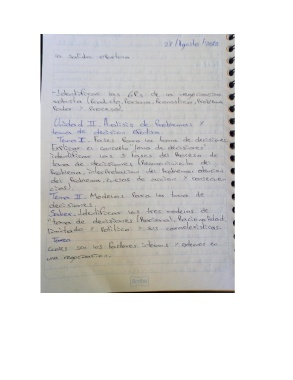 27/Agosto/
la Salida efectiva
- Identificar las 6Ps de la negociación
Unidad II Analisis de Problemas y
toma de decision efectiva
Tema I. Fases Para la toma de decisiones
Explicar el concepto "toma de decisiones"
Identificar las 3 fases del Proceso de
toma de decisiones (Reconocimiento de
Problema, Interpretacion del Problema atencion
del Problema, cursos de accion y consecuen
cias)
Tema II. Modelos Para la toma de
decisiones.
Saber. Identificar los tres modelos de
toma de decisiones (Racional, Racionalidad
limitada y Politico y sus caracteristicas.
Tarea
Cuales son los factores internos y externos en
una negociacion.